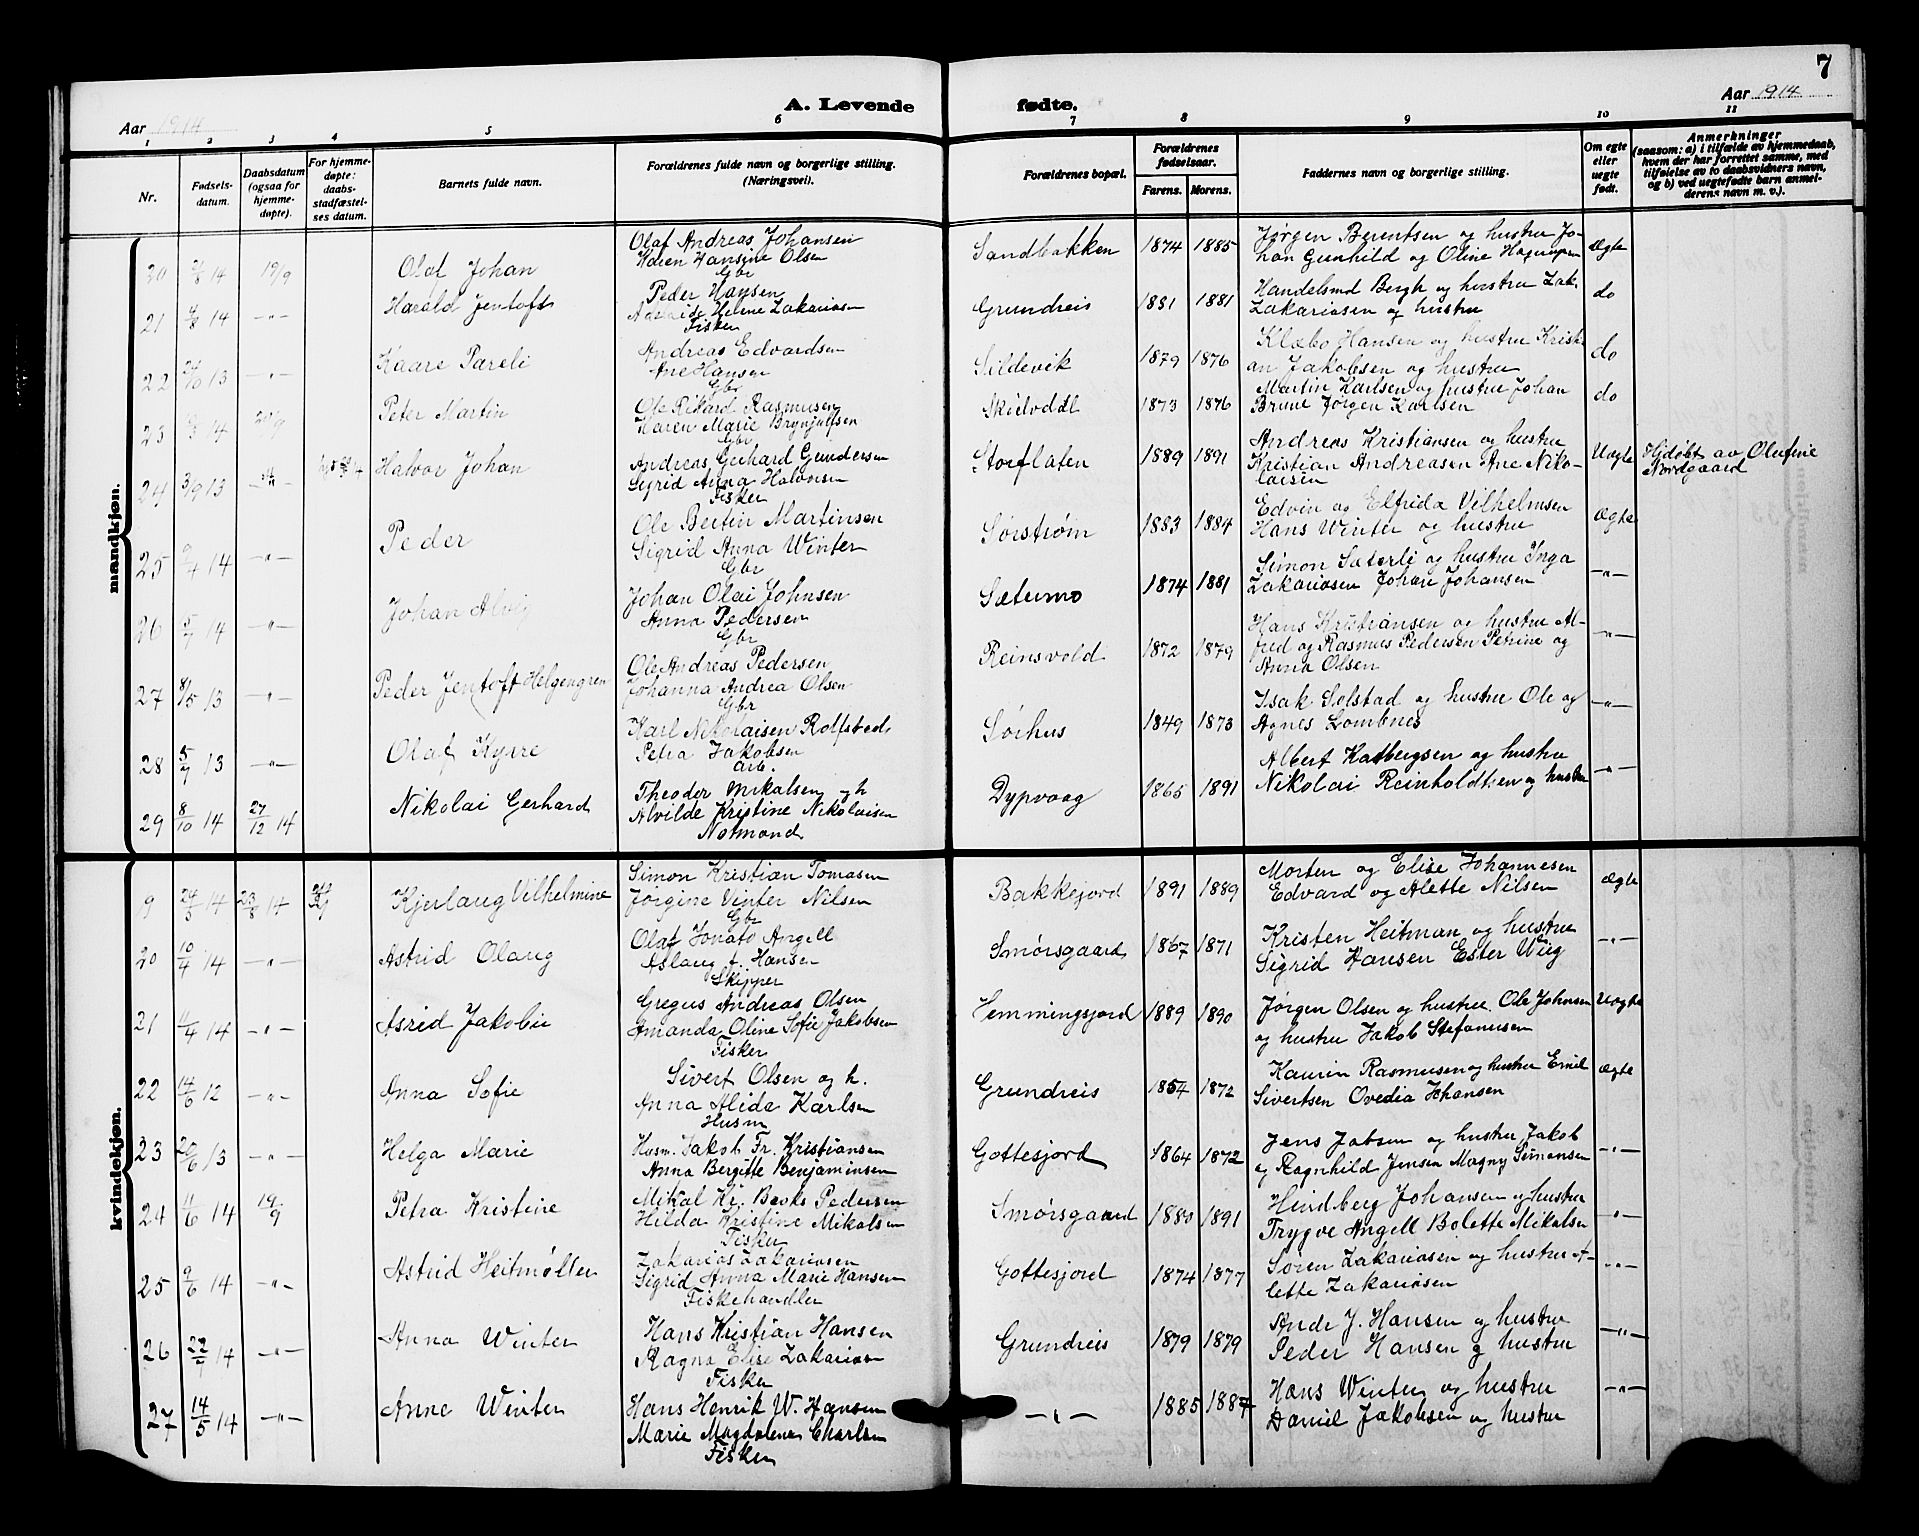 7
A. Levende fødte.
Aar 1914
Aar 1914
1 2 3 4 5 6 7 8 9 10 11
Nr.
Fødsels-
datum.
Daabsdatum
(ogsaa for
hjemme-
døpte).
For hjemme-
døpte:
daabs-
stadfæstel-
ses datum.
Barnets fulde navn.
Forældrenes fulde navn og borgerlige stilling.
(Næringsvei).
Forældrenes bopæl.
Forældrenes
fødselsaar.
Farens. Morens.
Faddernes navn og borgerlige stilling.
Om egte
eller
uegte
født.
Anmerkninger
(saasom: a) i tilfælde av hjemmedaab,
hvem der har forrettet samme, med
tilføielse av to daabsvidners navn,
og b) ved uegtefødte barn anmel-
derens navn m. v.).
mandkjøn.
20 14 19/9 Olaf Johan
Olaf Andreas Johansen
Karen Hansine Olsen
Gbr
Sandbakken 1874 1885
Jørgen Berentsen og hustru Jo-
han Gunhild og Oline
Ægte
21 14 -"- Harald Jentoft
Peder Hansen
Helene Zakariasen
Fisker
Grundreis 1881 1881
Handelsmd Bergh og hustru Zak.
Zakariasen og hustru
do
22 13 -"- Kaare Pareli
Andreas Edvardsen
Ane Hansen
Gbr
Sildevik 1879 1876
Klæbo Hansen og hustru Kristi-
an Jakobsen og hustru
do
23 14 Peter Martin
Ole Rikard Rasmussen
Karen Marie Brynjulfsen
Gbr
1873 1876
Martin Karlsen og hustru Johan
Brun Jørgen Karlsen
do
24 3/9 13 Halvor Johan
Andreas Gerhard Gundersen
Sigrid Anna Halvorsen
Fisker
Storflaten 1889 1891
Andreas Kristiansen og hustru
Kristian Andreasen Ane Niko-
laisen
Uegte
Hjdøbt av Olufine
Nordgaard
25 14 -"- Peder
Ole Bertin Martinsen
Sigrid Anna Winter
Gbr
Sørstrøm 1883 1884
Edvin og Elfrida Vilhelmsen
Hans Winter og hustru
Ægte
26 5/7 14 -"- Johan
Johan Olai Johnsen
Anna Pedersen
Gbr
Sætermo 1874 1881
Simon Sæterli og hustru Inga
Zakariasen Johan Johansen
-"-
27 8/5 13 -"- Peder Jentoft Helgengren
Ole Andreas Pedersen
Johanna Andrea Olsen
Gbr
Reinsvold 1872 1879
Hans Kristiansen og hustru Al-
fred og Rasmus Pedersen Petrine og
Anna Olsen
-"-
28 5/7 13 -"- Olaf Kyrre
Karl Nikolaisen Rolfstad
Petra Jakobsen
arb.
Sørhus 1849 1873
Isak Solstad og hustru Ole og
Agnes Lombnes
-"-
29 8/10 14 27/12 14 Nikolai Gerhard
Theodor Mikalsen og h
Alvilde Kristine Nikolaisen
Notmand
Dypvaag 1865 1891
Albert Kadbergsen og hustru
Nikolai Reinholdtsen og hustru
-"-
kvindekjøn.
9 24/5 14 23/8 14 Kjerlaug Vilhelmine
Simon Kristian Tomasen
Jørgine Vinter Nilsen
Gbr
Bakkejord 1891 1889
Morten og Elise Johannesen
Edvard og Alette Nilsen
Ægte
20 10/4 14 -"- Astrid Olaug
Olaf Tonato Angell
Aslaug f. Hansen
Skipper
Smørsgaard 1867 1871
Kristen Heitman og hustru
Sigrid Hansen Ester Wiig
-"-
21 11/4 14 -"- Asrid Jakobie
Gregus Andreas Olsen
Amanda Oline Sofie Jakobsen
Fisker
Hemmingsjord 1889 1890
Jørgen Olsen og hustru Ole Johnsen
og hustru Jakob Stefanusen
Uegte
22 14/6 12 -"- Anna Sofie
Sivert Olsen og h.
Anna Alida Karlsen
Husm
Grundreis 1854 1872
Kaurin Rasmussen og hustru Emil
Sivertsen Ovedia Johansen
Ægte
23 20/6 13 -"- Helga Marie
Husm. Jakob Fr. Kristiansen
Anna Bergitte Benjaminsen
Gottesjord 1864 1872
Jens Jobsen og hustru Jakob
og Ragnhild Jensen Magny Simonsen
-"-
24 11/6 14 19/9 Petra Kristine
Mikal Kr. Bevks Pedersen
Hilda Kristine Mikalsen
Fisker
Smørsgaard 1880 1891
Hindberg Johansen og hustru
Trygve Angell Bolette Mikalsen
-"-
25 9/6 14 -"- Astrid Heitmøller
Zakarias Zakariasen
Sigrid Anna Marie Hansen
Fiskehandler
Gottesjord 1874 1877
Søren Zakariasen og hustru A-
lette Zakariasen
-"-
26 22/7 14 -"- Anna Winter
Hans Kristian Hansen
Ragna Elise Zakariasen
Fisker
Grundreis 1879 1879
Andr J. Hansen og hustru
Peder Hansen og hustru
-"-
27 14/5 14 -"- Anne Winter
Hans Henrik W. Hansen
Marie Magdalena Charlsen
Fisker
-"- 1885 1887
Hans Winter og hustru
Daniel Jakobsen og hustru
-"-